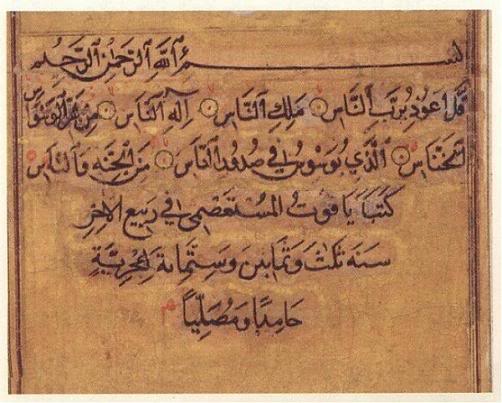 بسم الله الرحمن الرحيم
قل اعوذ برب الناس ملك الناس اله الناس من شر الوسواس
الخناس الذي يوسوس في صدور الناس من الجنه والناس
كتبه ياقوت المستعصمي في ربيع الاخر
سنه ثلث وثمانين وستمائة الهجرية
حامدا ومصليا